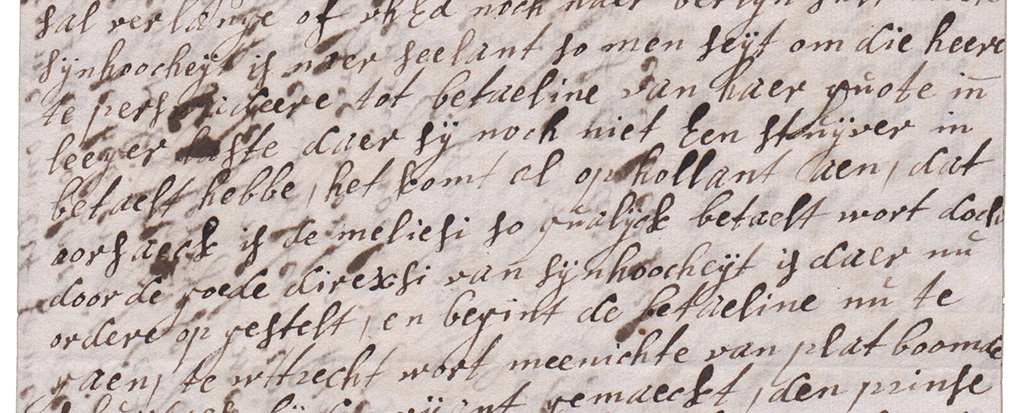 sal verlange of vhEd noch naer berlyn
synhoocheyt is naer seelant so men seyt om die heere
te persuadeere tot betaeline van haer quote in
leeger laste daer sy noch niet Een stuyver in
betaelt hebbe, het komt al op hollant aen, dat
oorsaeck is de meliesi so qualyck betaelt wort doch
door de goede direxsi van synhoocheyt is daer nu
ordere op gestelt, en begint de betaeline nu te
gaen, te wttrecht wort meenichte van plat boomde
gemaeckt, den prinse